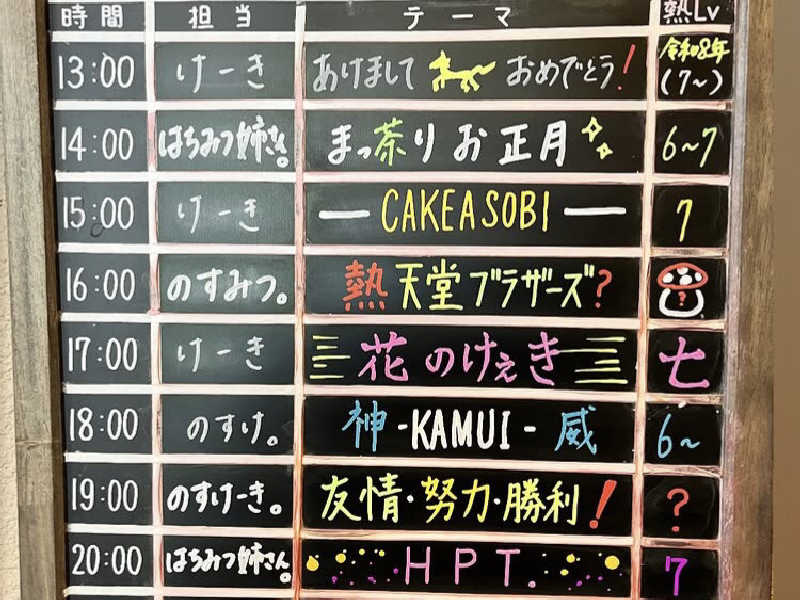 時間 担当 テーマ 熱Lv
13:00 けーき あけまして おめでとう! 令和8年 (7~)
14:00 はちみつ姉さん。 まっ茶り お正月 6~7
15:00 けーき ― CAKEASOBI ― 7
16:00 のすみつ。 熱天堂ブラザーズ? ?
17:00 けーき 花のけぇき 七
18:00 のすけ。 神-KAMUI-威 6~
19:00 のすけーき。 友情・努力・勝利! ?
20:00 はちみつ姉さん。 HPT. 7